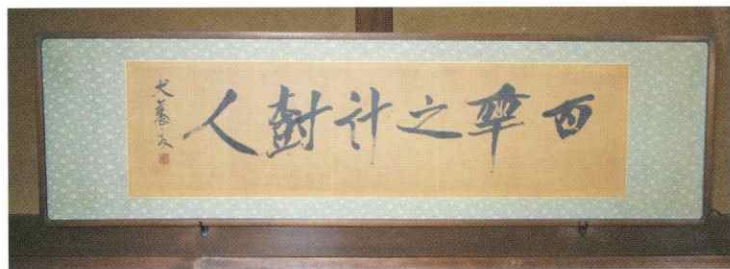 百年之計樹人
犬養毅